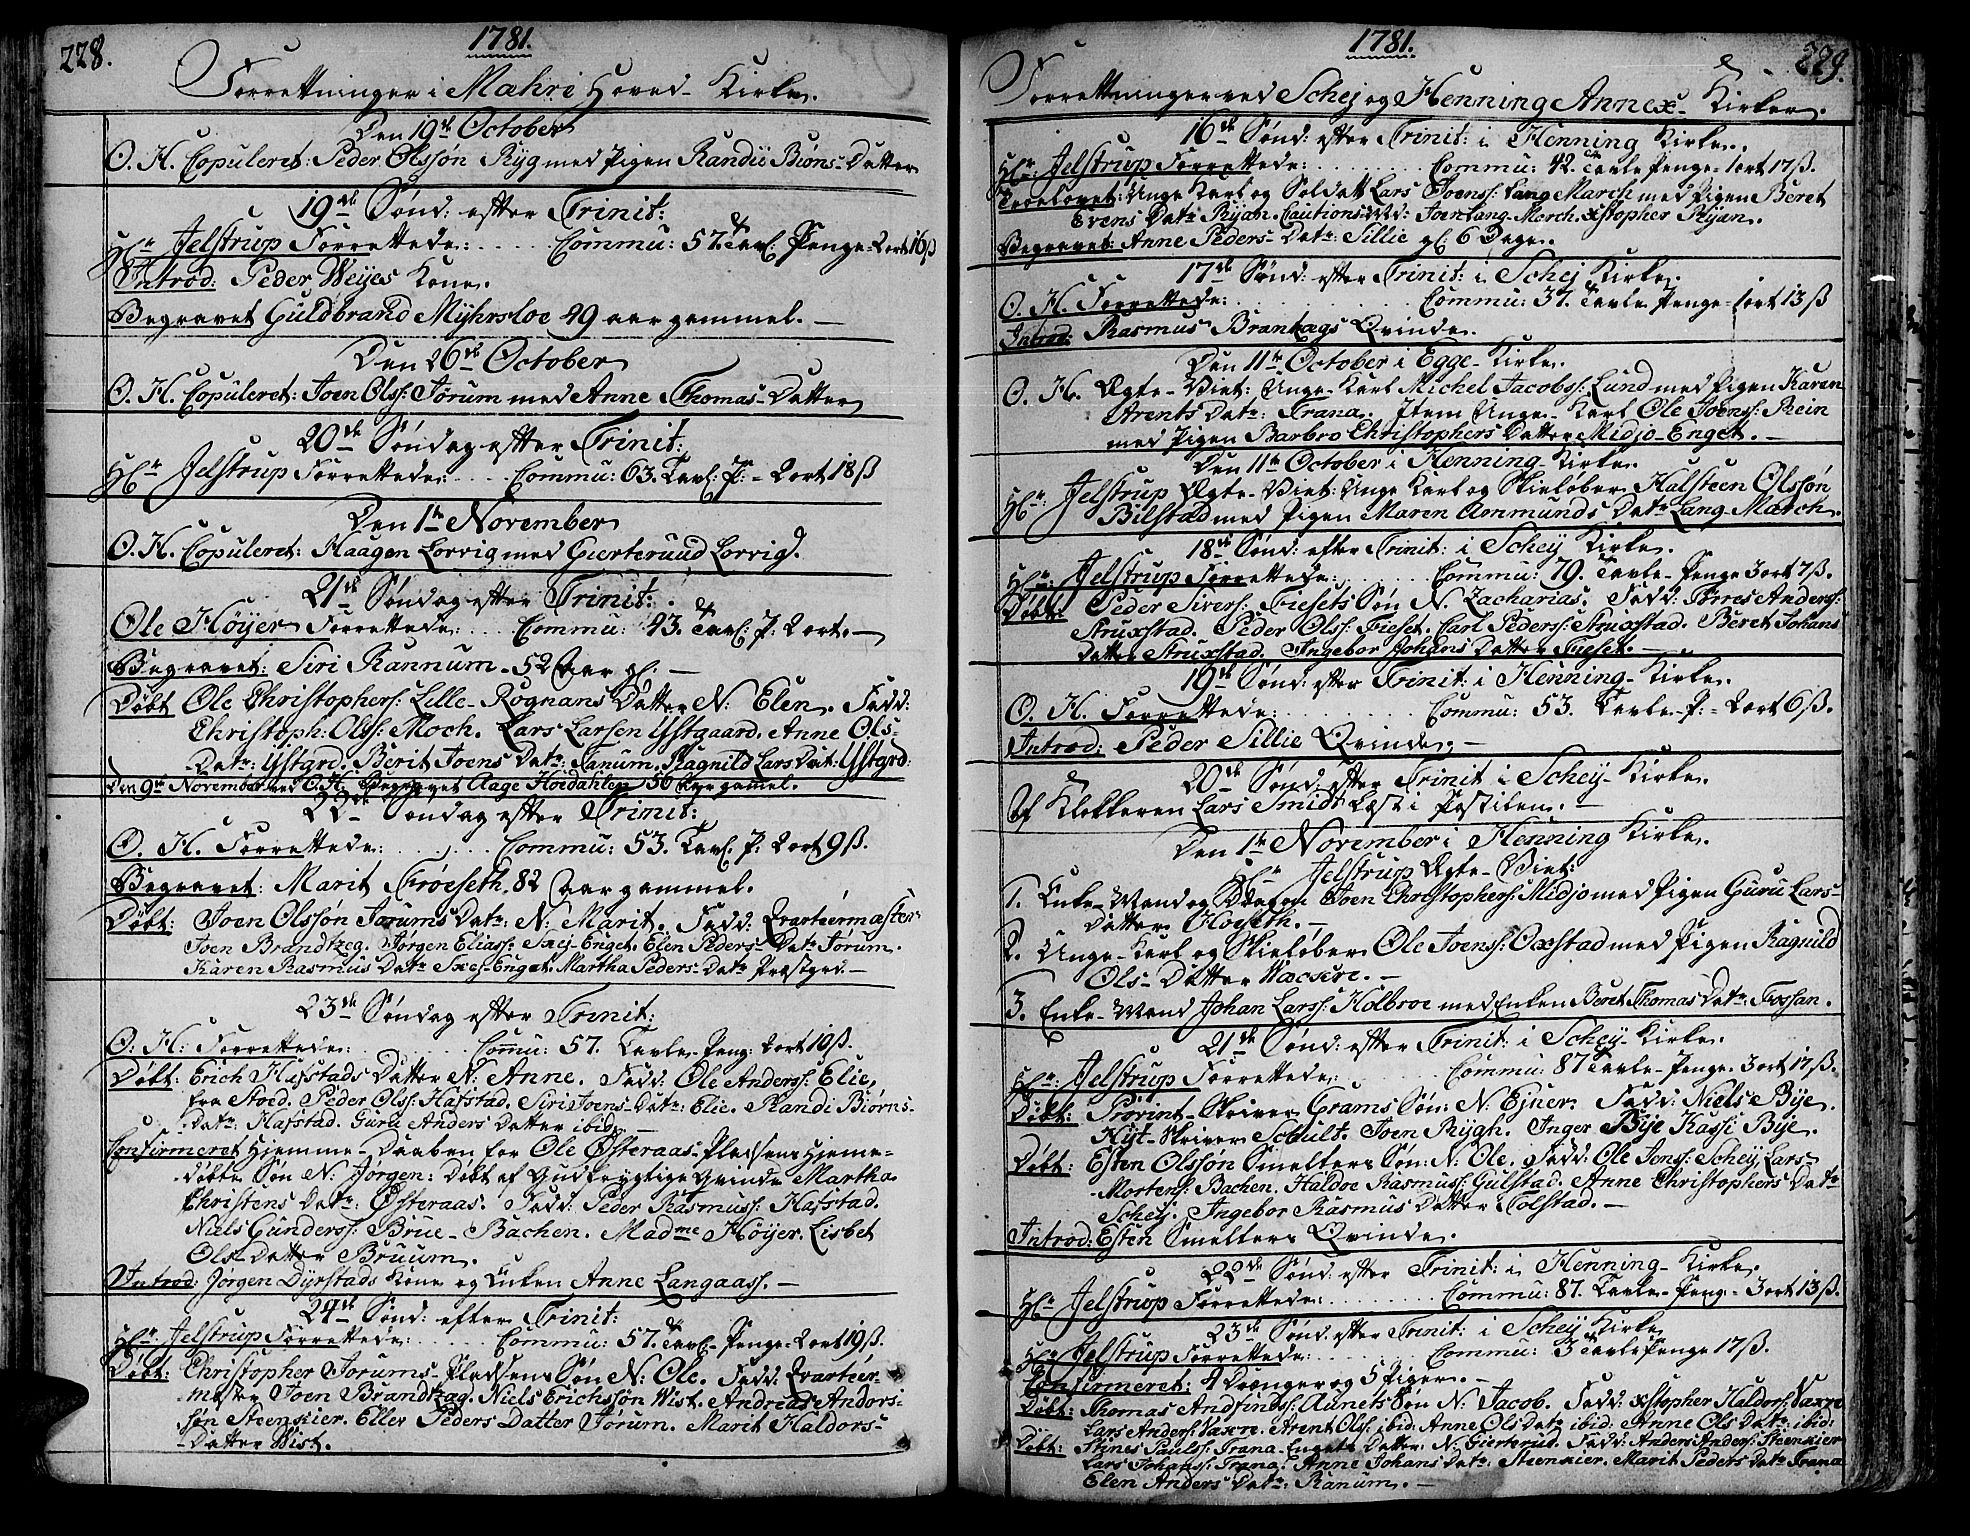 228.
1781.
Forrettninger i Mæhri Hoved-Kirke.
Den 19de October
O. H. Copuleret: Peder Olssøn Ryg med Pigen Randii Biøns-Datter
19de Sønd: efter Trinit:
Hr. Jelstrup Forrettede: Commu: 57. Tavl: Penge-2ort 16ß
Introd: Peder Weijes Kone.
Begravet Guldbrand Myhrsloe 49 aar gammel.
Den 26de October
O. H. Copuleret: Joen Olss: Jørum med Anne Thomas-Datter
20de Søndag efter Trinit:
Hr. Jelstrup Forrettede: Commu: 63. Tavl: P:-2ort 18ß
Den 1te November
O. H. Copuleret: Haagen Lorvig med Gierteruud Lorvig.
21de Søndag efter Trinit:
Ole Høyer Forrettede: Commu: 43. Tavl: P: 2ort.
Begravet: Siri Rannum - 52 Aar gl:
Døbt Ole Christophers: Lille-Rognans Datter N: Elen. Fadd:
Christoph: Olss: Moch. Lars Larsen Ystgaard. Anne Ols-
Datr: Ystgrd. Berit Joens Datr: Tanum. Ragnild Lars Dat: Ystgrd:
Den 9de November ved O. H. Begravet Aage Hoedahlen 56 Aar gammel.
22de Søndag efter Trinit:
O. H. Forrettede: Commu: 53. Tavl: P: 2ort 9ß.
Begravet: Marit Frøeseth. 82 Aar gammel.
Døbt: Joen Olssøn Jorums Datr: N: Marit. Fadd: Qvarteermester
Joen Brandtzeg. Jørgen Eliass: Skej-Enget. Elen Peders-Datr Jørum.
Karen Rasmus Datr Skej-Enget. Martha Peders-Datr Præstgrd.
23de Søndag efter Trinit:
O: H: Forrettede: Comu: 57. Tavle-Peng: 2ort 19ß.
Døbt: Erich Hafstads Datter N: Anne. Fadd: Ole Anderss: Elie,
fra Stoed. Peder Olss: Hafstad. Siri Joens-Datr: Elie. Randi Biørns-
Datr: Hafstad. Guru Anders Datter ibid.
Confirmeret Hjemme-Daaben for Ole Østeraas-Pladsens Hjeme-
døbte Søn N: Jørgen: døbt af Gudfrygtige Qvinde Martha
Christens Datr: Østeraas. Fadd: Peder Rasmuss: Hafstad.
Niels Gunderss: Brue-Bachen. Madme Høyer. Lisbet
Ols-Datter Bruum.
Introd: Jørgen Dyrstads Kone og Enken Anne Langaass.
24de Sønd: efter Trinit:
Hr. Jelstrup Forrettede: Commu: 57. Tavl-Penge-2ort 19ß.
Døbt: Christopher Jorums-Pladsens Søn N: Ole. Fadd: Qvarteer-
mester Joen Brandtzag. Niels Erichssøn Wist. Andreas Anders-
søn Steenkier. Eller Peders Datter Jorum. Marit Haldors-
Datter Wist.
1781.
229.
Forrettninger ved Schej og Henning Annex-Kirker.
16de Sønd: efter Trinit: i Henning Kirke.
Hr. Jelstrup Forrettede: Commu: 42. Tavle Penge-1ort 17ß
Trolovet: Unge Karl og Soldat Lars Joenss: Lang March med Pigen Beret
Evens Datr Ryan. Cautions Md: Joen Lang March. xstopher Ryan.
Begravet: Anne Peders-Datr: Sillie gl: 6 Dage.
17de Sønd: efter Trinit: i Schej Kirke
O. H. Forrettede: Commu: 37. Tavle Penge-1ort 13ß
Introd: Rasmus Brantzægs Qvinde.
Den 11te October i Egge-Kirke.
O. H. Ægte-Viet: Unge-Karl Michel Jacobss: Lund med Pigen Karen
Arents Datr: Frana. Item Unge-Karl Ole Joenss: Rein
med Pigen Barbro Christophers Datter Midjo-Enget.
Den 11te October i Henning-Kirke.
Hr: Jelstrup Ægte-Viet: Unge Karl og Skieløber Halsteen Olssøn
Bilstad med Pigen Maren Ammunds Datr Lang March.
18de Sønd: efter Trinit: i Schey Kirke.
Hr: Jelstrup Forrettede: Commu: 79. Tavle-Penge 3ort 7ß.
Døbt: Peder Sivers: Fiesets Søn N. Zacharias. Fadd: Torres Anderss:
Struxstad. Peder Olss: Fieset. Carl Peders: Struxstad. Beret Johans
Datter Struxstad. Ingebor Johans Datter Fieset.
19de Sønd: efter Trinit: i Henning-Kirke.
O. H. Forrettede: Commu: 53. Tavle-P:-2ort 6ß.
Introd: Peder Sillie Qvinde.
20de Sønd: efter Trinit i Schey-Kirke.
Af Klokkeren Lars Smidt Læst i Postilen.
Den 1te November i Henning Kirke.
Hr Jelstrup Ægte-Viet:
1. Enke-Mand og Joen Christophers: Midjo med Pigen Guru Lars-
Datter Hoeseth.
2. Unge-Karl og Skieløber Ole Joenss: Oxstad med Pigen Ragnild
Ols-Datter Wacsere.
3. Enke-Mand Johan Larss: Holbroe med Enken Beret Thomas Datr: Fossan.
21de Sønd: efter Trinit: i Schey-Kirke.
Hr: Jelstrup Forrettede: Commu: 87 Tavle-Penge. 3ort 17ß.
Døbt: Provint-Skriver Grams Søn: N: Ejner. Fadd: Niels Bye.
Kyst-Skriver Schult. Joen Rygh. Inger Bye Kassi Bye.
Døbt: Esten Olssøn Smelters Søn: N: Ole. Fadd: Ole Jenss: Schey, Lars
Mortens: Bachen. Haldoe Rasmuss: Gulstad. Anne Christophers Datr
Schej. Ingebor Rasmus Datter Tolstad.
Introd: Esten Smelters Qvinde.
22de Sønd: efter Trinit: i Henning-Kirke.
Hr Jelstrup Forrettede: Commu: 87. Tavle-Peng-3ort 13ß.
23de Sønd: efter Trinit: i Schey Kirke
Hr. Jelstrup Forrettede: Commu: 3 Tavle Penge 17ß.
Confirmeret: 4 Drenger og 5 Piger.
Døbt: Thomas Andfindss: Aunets Søn N: Jacob. Fadd: xstopher Haldors: Vaxre
Lars Anders: Vaxere. Arent Olss: ibid: Anne Ols Datr ibid: Anne Ols Datr: ibid:
Døbt: Stines Paulss: Frana-Engets Datter N: Gierterud. Fadd: Anders Anders: Steenkier
Lars Johanss: Frana. Anne Johans Datr. Steenkier. Marit Peders Datr Frana
Elen Anders Datr: Ranum.